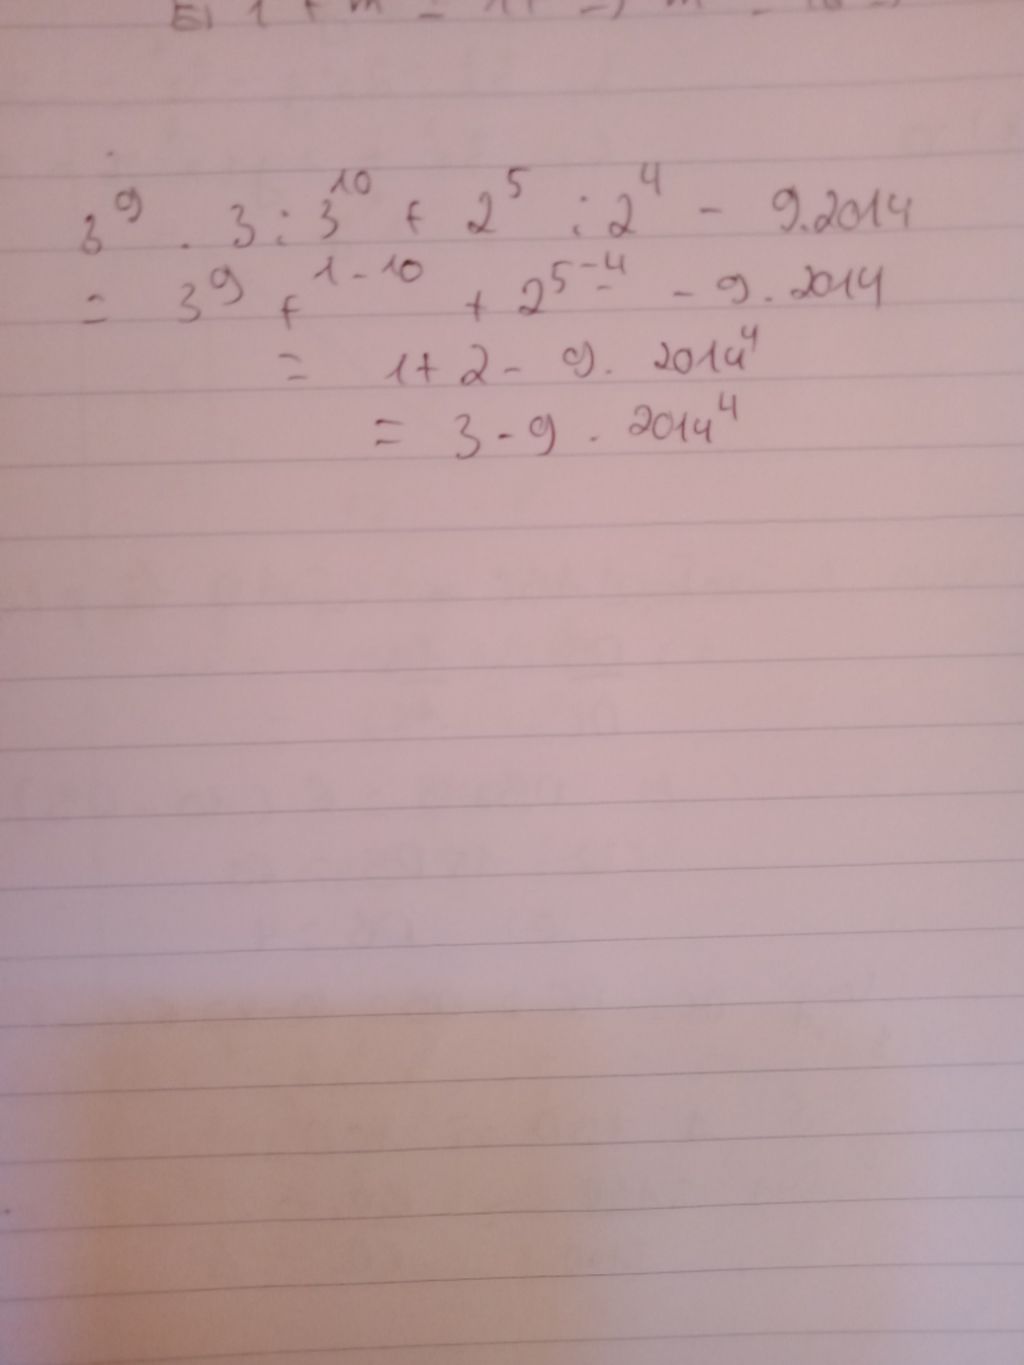 3⁹ . 3 : 3¹⁰ + 2⁵ : 2⁴ - 9.2014
= 3⁹ ⁺ ¹⁻¹⁰ + 2⁵⁻⁴ - 9. 2014
= 1 + 2 - 9. 2014⁴
= 3 - 9 . 2014⁴